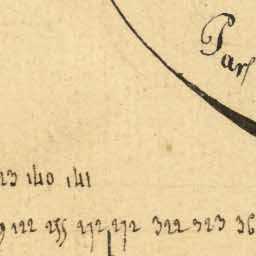 Par
23 140 141
122 255 272 272 322 323 36